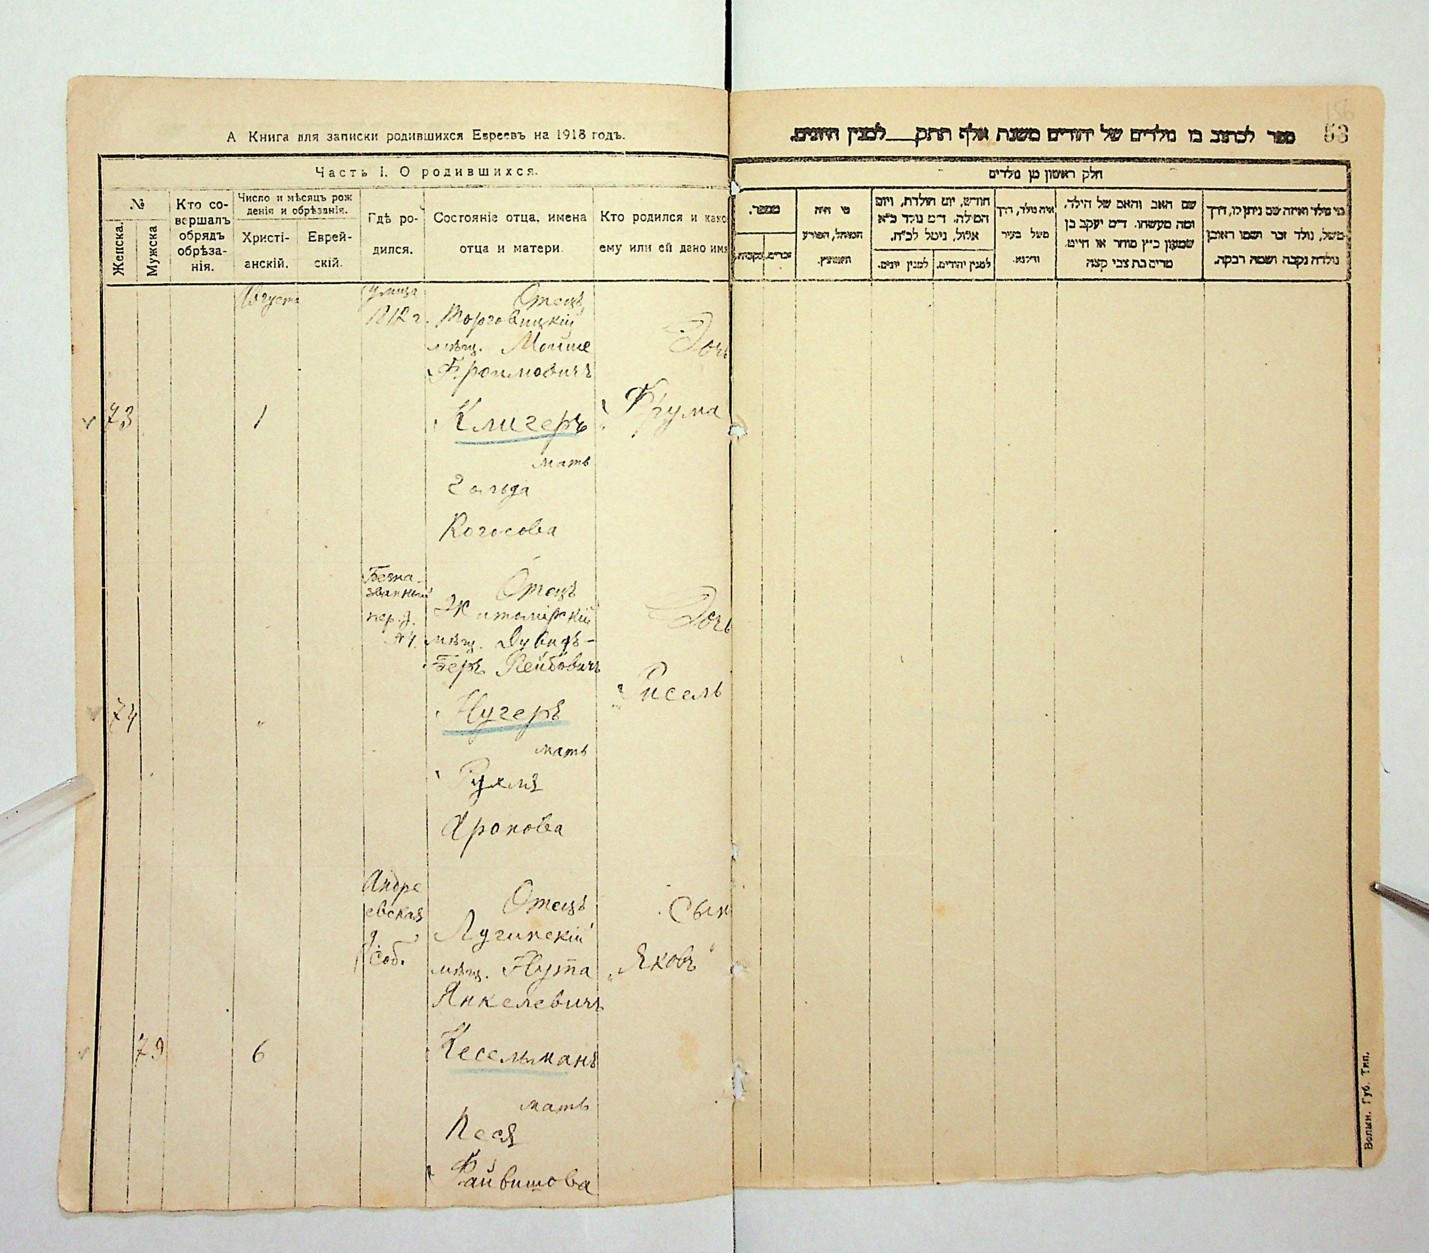 А Книга для записки родившихся Евреевъ на 1918 годъ.
Часть I. О родившихся.
№
Женска.
Мужска
Кто со-
вершалъ
обрядъ
обрѣза-
нія.
Число и мѣсяцъ рож
денія и обрѣзанія.
Христі-
анскій.
Еврей-
скій.
Гдѣ ро-
дился.
Состояніе отца, имена
отца и матери.
Кто родился и како
ему или ей дано имя
Августа
улица
Отецъ
Торговицкій
мѣщ. Мойше
Фроимовичъ
Дочь
73
1
Клигеръ
Фрума
мать
Гольда
Когосова
Безна-
званный
пер. д.
№4.
Отецъ
Житомірскій
мѣщ. Дувидъ-
Беръ Лейбовичъ
Дочь
74
"
Нугеръ
"Рисель
мать
Рухля
Аронова
Андре
евская
д.
соб.
Отецъ
Лугинскій
мѣщ. Нута
Янкелевичъ
Сын
„Яковъ"
79
6
Кесельманъ
мать
Песя
Файвишова
53
ספר לכתוב בו נולדים של יהודים משנת אלף תתק___ למנין היונים.
חלק ראשון מן נולדים
מספר.
נקבות.
זכרים.
מי היה
המוהל, הפורע
והמוצץ.
חודש, יום הולדת, ויום
המילה. ד״מ נולד כ״א
אלול, נימול לכ״ח.
למנין יונים.
למנין יהודים.
איה נולד, דרך
משל בעיר
ווילנא.
שם האב והאם של הילד,
ומה מעשהו. ד״מ יעקב בן
שמעון כ״ץ סוחר או חייט.
מרים בת צבי קצה
מי נולד ואיזה שם ניתן לו, דרך
משל, נולד זכר ושמו ראובן
נולדה נקבה ושמה רבקה.
Волын. Губ. Тип.